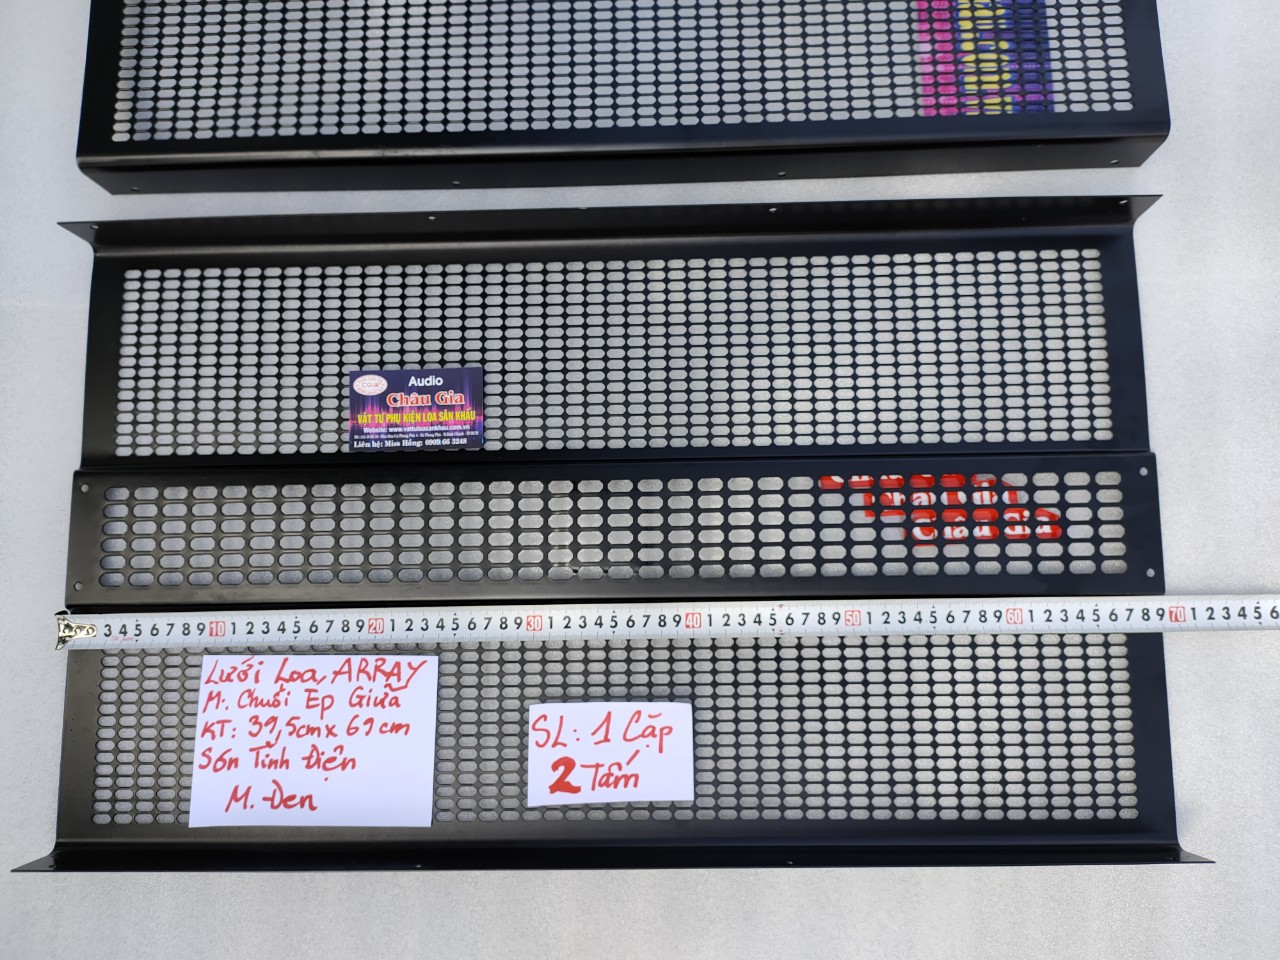 Audio
Châu Gia
VẬT TƯ PHỤ KIỆN LOA SÂN KHẤU
Website: www.vattuloasankhau.com.vn
Liên hệ: Miss Hồng: 0909 66 3248
Châu Gia
3 4 5 6 7 8 9 10 1 2 3 4 5 6 7 8 9 20 1 2 3 4 5 6 7 8 9 30 1 2 3 4 5 6 7 8 9 40 1 2 3 4 5 6 7 8 9 50 1 2 3 4 5 6 7 8 9 60 1 2 3 4 5 6 7 8 9 70 1 2 3 4 5 6
Lưới Loa, ARRAY
M: Chuối Ep Giữa
KT: 39,5cm x 69cm
Sơn Tĩnh Điện
M. Đen
SL: 1 Cặp
2 Tấm